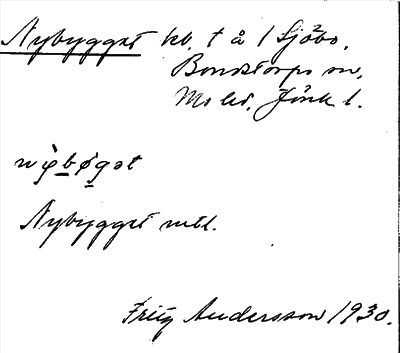 Nybygget kb. t å / Sjöbo,
Bondstorps sn,
Mo hd, Jönk l.
Nybygget mtl.
Fritz Andersson 1930.